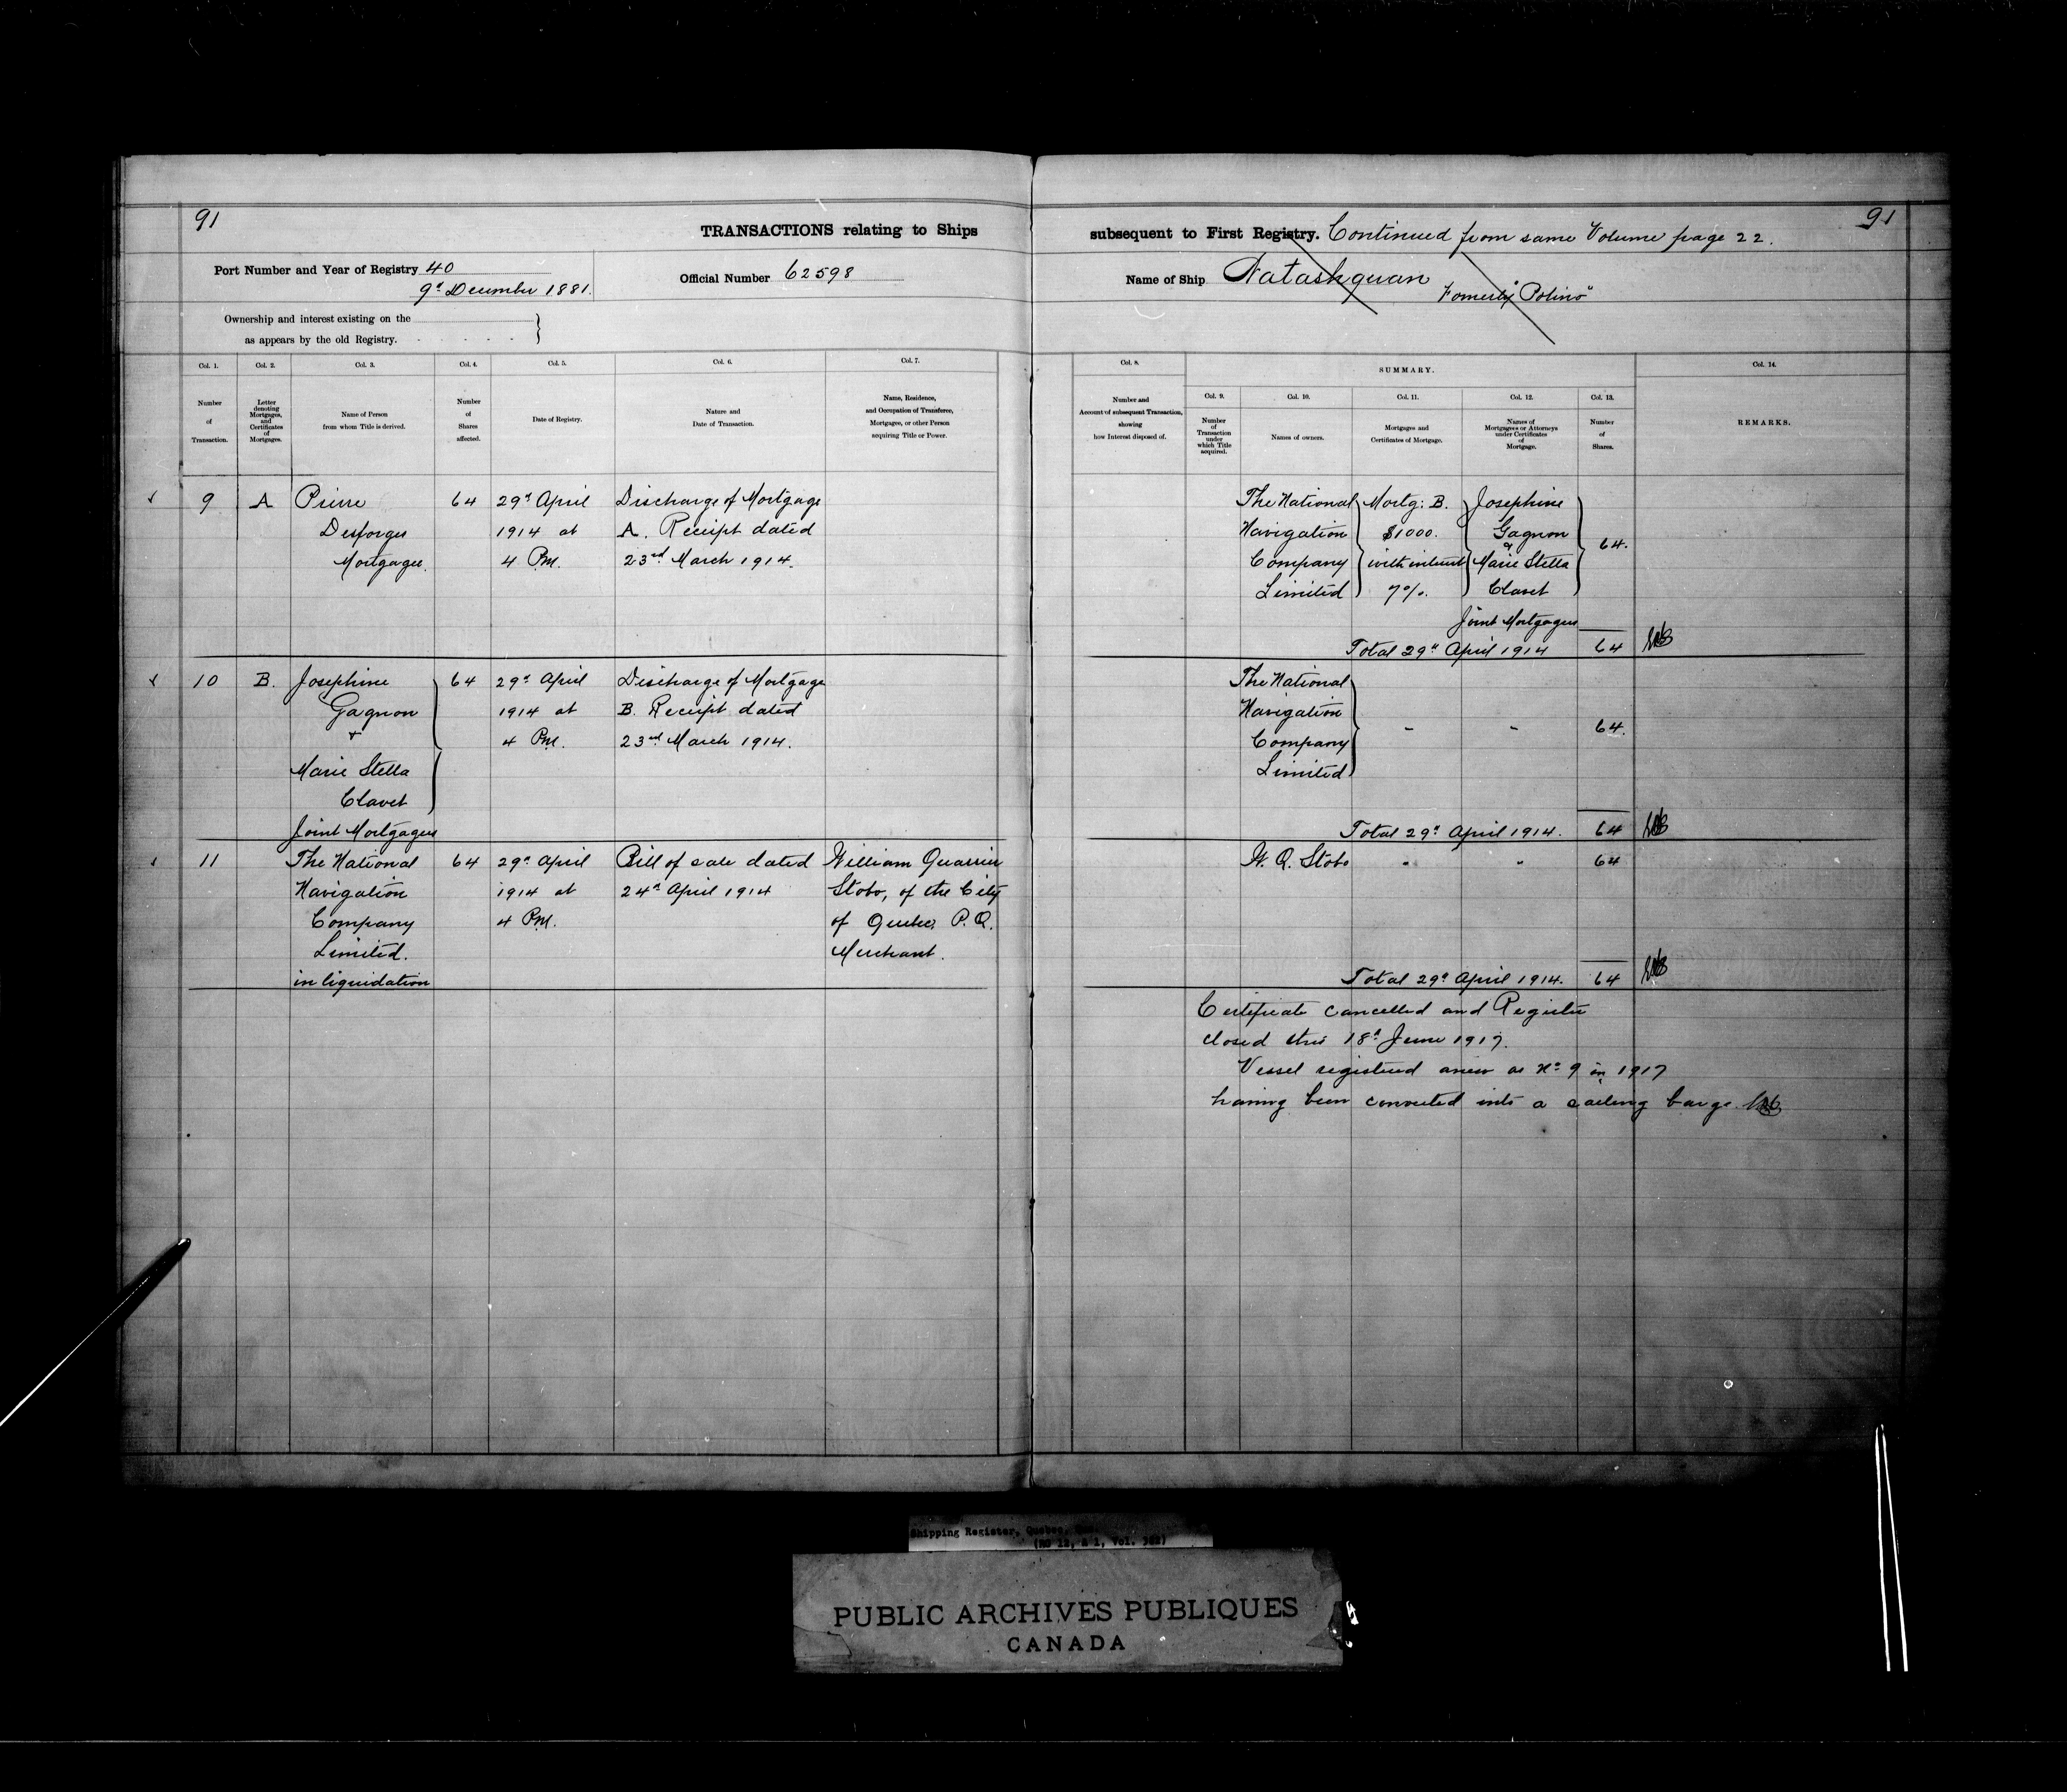 91
TRANSACTIONS relating to Ships
subsequent to First Registry. Continued from same Volume page 22.
91
Port Number and Year of Registry 40
9th December 1881.
Official Number 62598
Name of Ship Natashquan
Formerly "Polino"
Ownership and interest existing on the
as appears by the old Registry.
Col. 1.
Number
of
Transaction.
Col. 2.
Letter
denoting
Mortgages,
and
Certificates
of
Mortgages.
Col. 3.
Name of Person
from whom Title is derived.
Col. 4.
Number
of
Shares
affected.
Col. 5.
Date of Registry.
Col. 6.
Nature and
Date of Transaction.
Col. 7.
Name, Residence,
and Occupation of Transferee,
Mortgagee, or other Person
acquiring Title or Power.
Col. 8.
Number and
Account of subsequent Transaction,
showing
how Interest disposed of.
SUMMARY.
Col. 9.
Number
of
Transaction
under
which Title
acquired.
Col. 10.
Names of owners.
Col. 11.
Mortgages and
Certificates of Mortgage.
Col. 12.
Names of
Mortgagees or Attorneys
under Certificates
of
Mortgage.
Col. 13.
Number
of
Shares.
Col. 14.
REMARKS.
9
A
Pierre
Desforges
Mortgagee.
64
29th April
1914 at
4 P.M.
Discharge of Mortgage
A. Receipt dated
23rd March 1914.
The National
Navigation
Company
Limited
Mortg: B.
$1000.
with interest
7%.
Josephine
Gagnon
&
Marie Stella
Clavet
Joint Mortgagees
64.
Total 29th April 1914 64
10
B.
Josephine
Gagnon
+
Marie Stella
Clavet
Joint Mortgagees
64
29th April
1914 at
4 P.M.
Discharge of Mortgage
B. Receipt dated
23rd March 1914.
The National
Navigation
Company
Limited
-
-
64.
Total 29th April 1914. 64
11
The National
Navigation
Company
Limited.
in liquidation
64
29th April
1914 at
4 P.M.
Bill of sale dated
24th April 1914
William Quarrier
Stobo, of the City
of Quebec, P.Q.
Merchant.
W. Q. Stobo
-
-
64
Total 29th April 1914. 64
Certificate cancelled and Register
closed this 18th June 1917.
Vessel registered anew as No 9 in 1917
having been converted into a sailing barge.
Shipping Register, Quebec,
(RG 12, A 1, Vol. 382)
PUBLIC ARCHIVES PUBLIQUES
CANADA